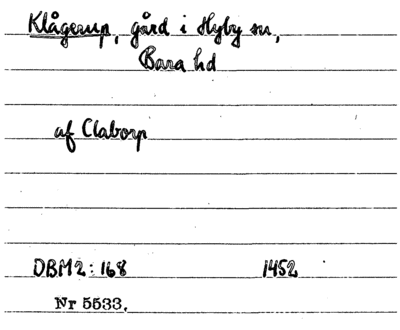 Klågerup, gård i Hyby sn,
Bara hd
af Claborp
DBM2:168 1452
Nr 5533.